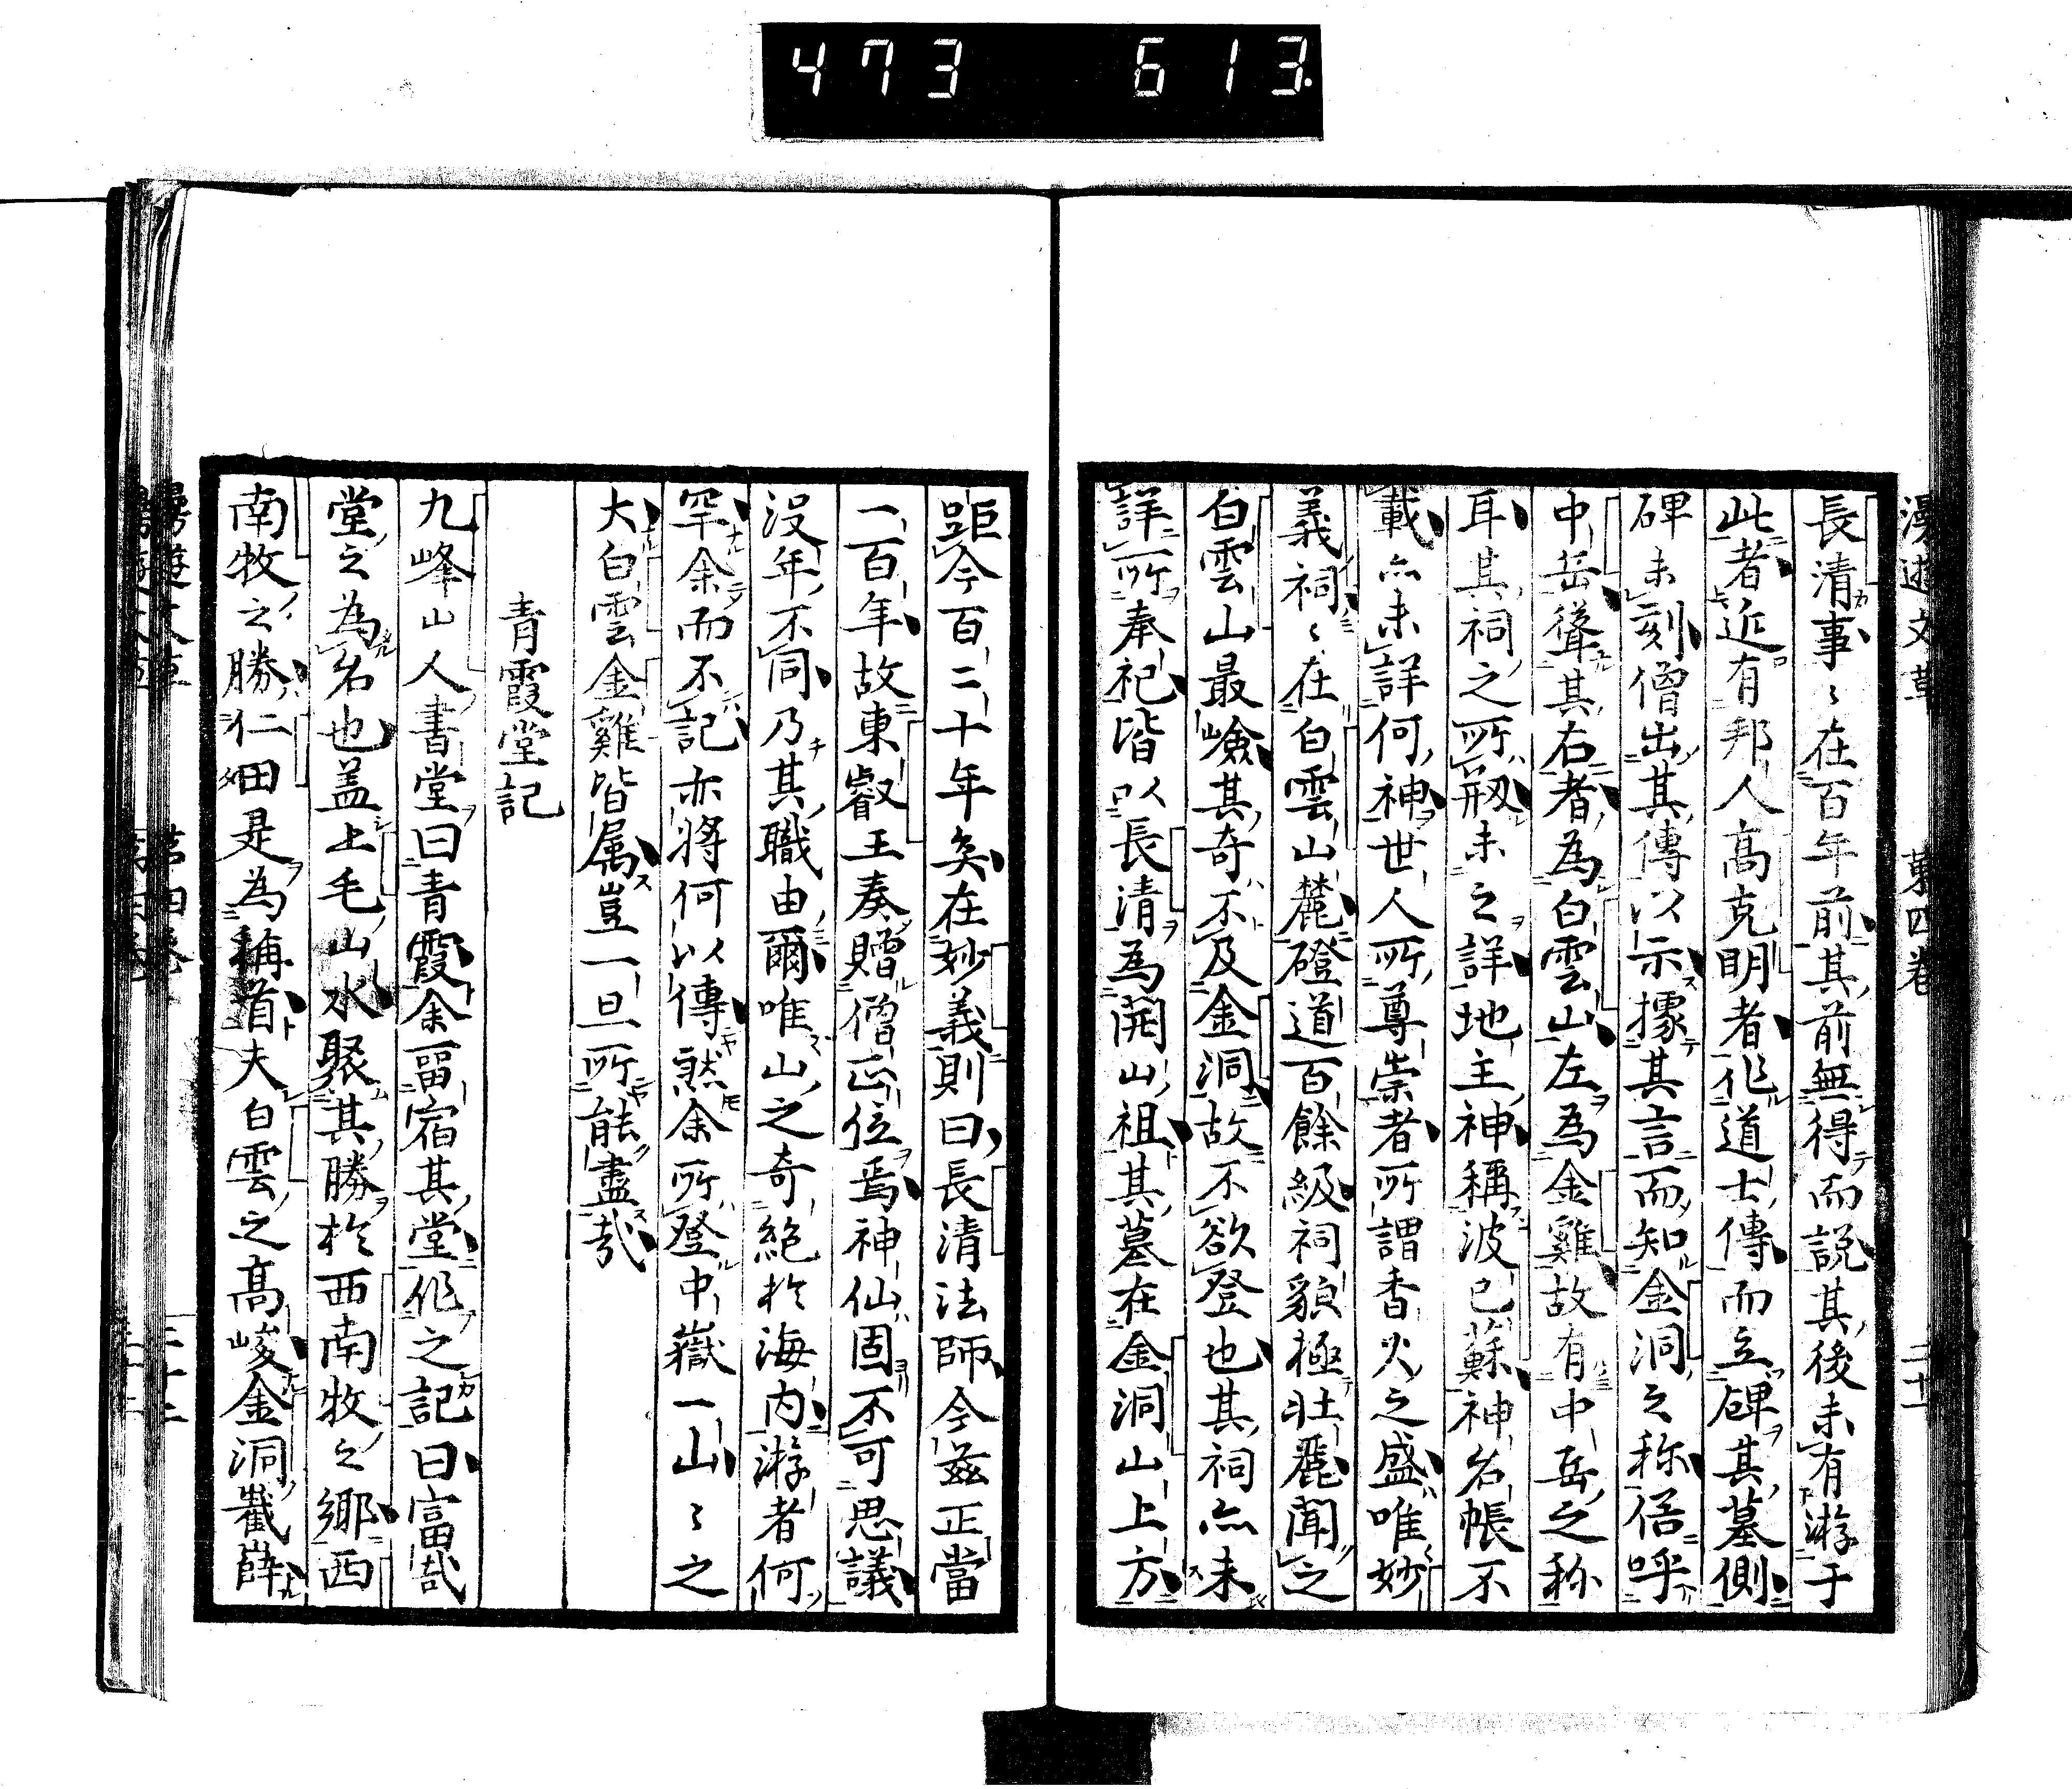 473 613.
漫遊文草 第四卷 二十一
長清事〻在百年前其前無得而説其後未有游于
此者近有邦人高克明者作道士傳而立碑其墓側
碑未刻僧出其傳以示據其言而知金洞之称偣呼
中岳聳其右者為白雲山左為金雞故有中岳之称
耳其祠之所剏未之詳地主神稱波己蘇神名帳不
載亦未詳何神世人所尊崇者所謂香火之盛唯妙
義祠〻在白雲山麓磴道百餘級祠貌極壮麗聞之
白雲山最嶮其奇不及金洞故不欲登也其祠亦未
詳所奉祀皆以長清為開山祖其墓在金洞山上方
距今百二十年矣在妙義則曰長清法師今茲正當
一百年故東叡王奏贈僧正位焉神仙固不可思議
没年不同乃其職由爾唯山之奇絶於海内游者何
罕余而不記亦將何以傳然余所登中嶽一山〻之
大白雲金雞皆属豈一旦所能盡哉
青霞堂記
九峰山人書堂曰青霞余畱宿其堂作之記曰富哉
堂之為名也盖上毛山水聚其勝於西南牧之郷西
南牧之勝仁田是為稱首夫白雲之高峻金洞巀嶭